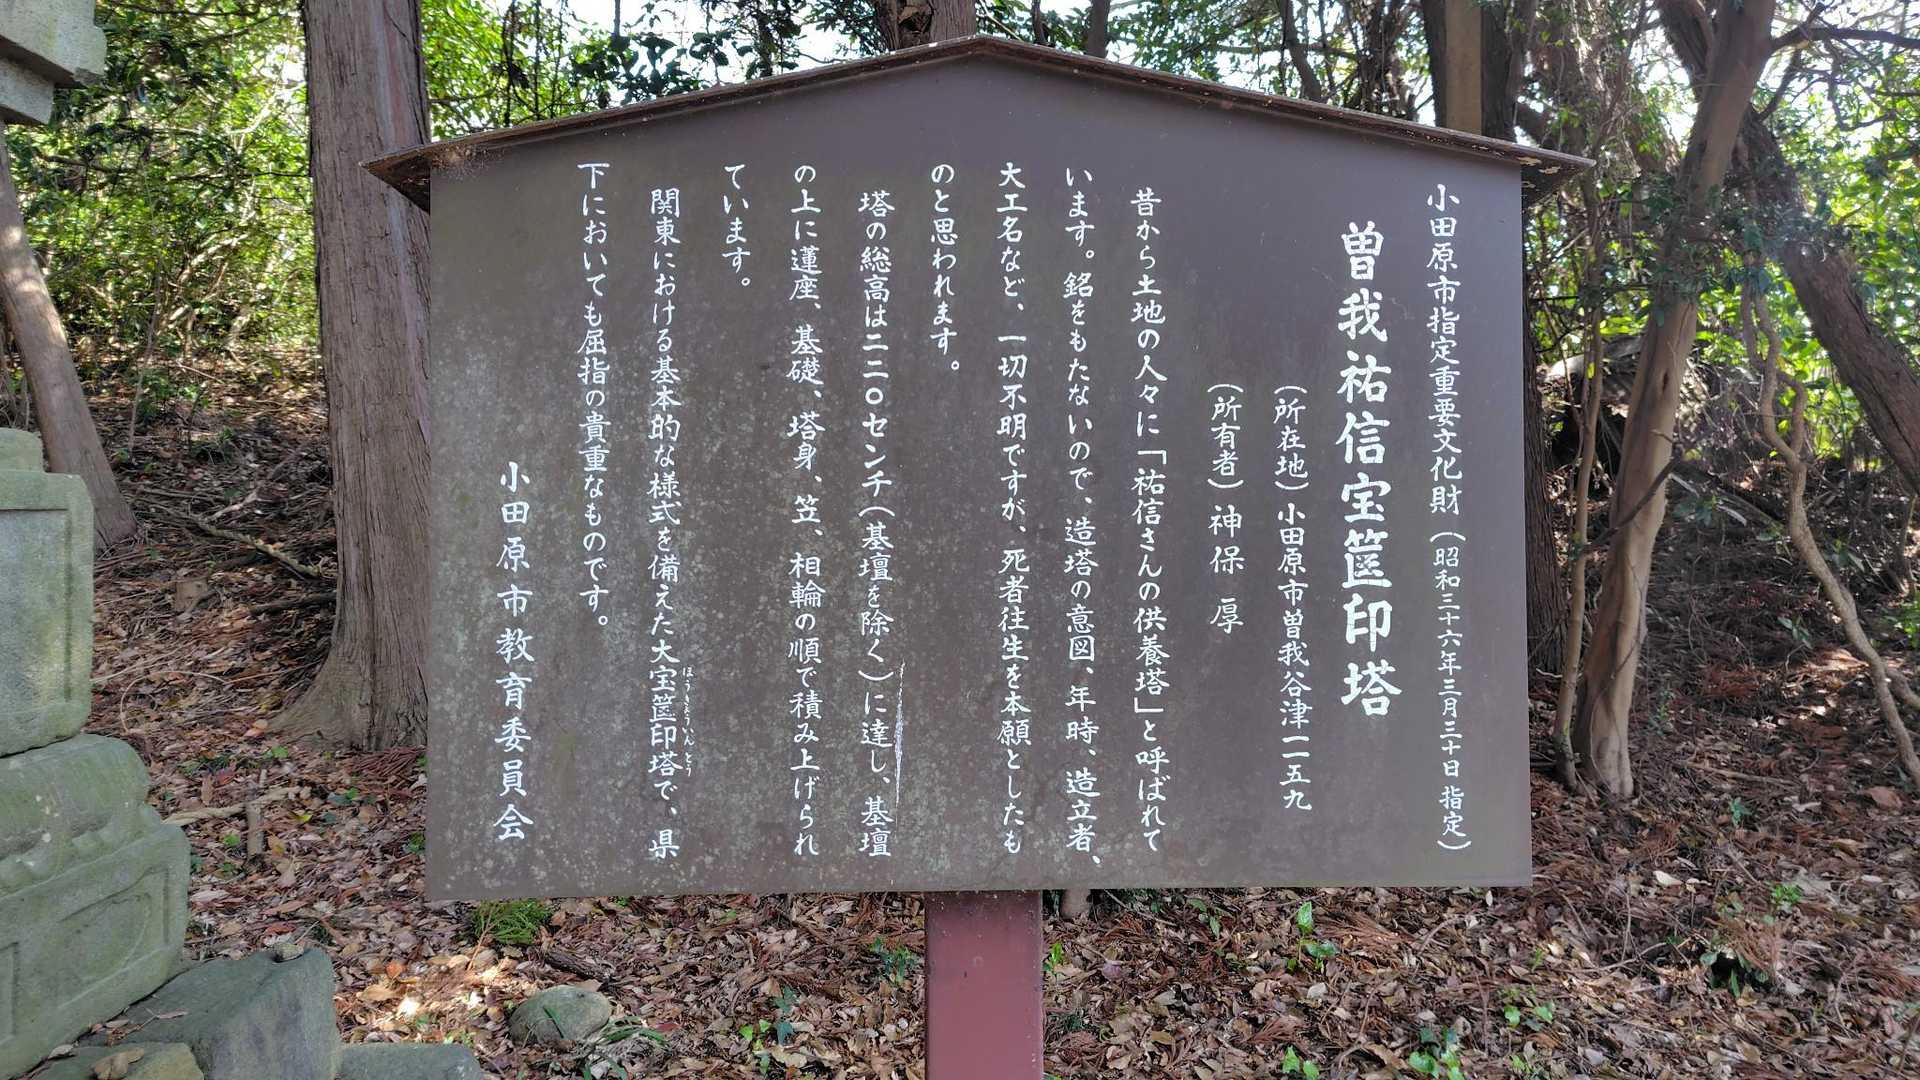 小田原市指定重要文化財（昭和三十六年三月三十日指定）
曽我祐信宝篋印塔
（所在地）小田原市曽我谷津一一五九
（所有者）神保 厚
昔から土地の人々に「祐信さんの供養塔」と呼ばれて
います。銘をもたないので、造塔の意図、年時、造立者、
大工名など、一切不明ですが、死者往生を本願としたも
のと思われます。
塔の総高は二二〇センチ（基壇を除く）に達し、基壇
の上に蓮座、基礎、塔身、笠、相輪の順で積み上げられ
ています。
関東における基本的な様式を備えた大宝篋印塔で、県
ほうきょういんとう
下においても屈指の貴重なものです。
小田原市教育委員会